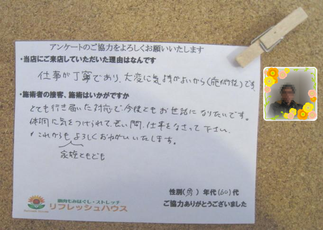 アンケートのご協力をよろしくお願いいたします
・当店にご来店していただいた理由はなんです
仕事が丁寧であり、大変に気持がよいから(施術的)です
・施術者の接客、施術はいかがですか
とても行き届いた対応で今後ともお世話になりたいです。
体調に気をつけられて長い間、仕事をなさって下さい。
これからもよろしくおねがいいたします。
家族ともども
性別(男)年代(60)代
ご協力ありがとうございました
筋肉もみほぐし・ストレッチ
リフレッシュハウス